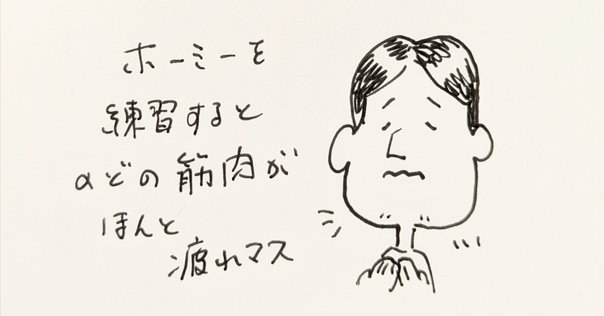 ホーミーを
練習すると
のどの筋肉が
ほんと
疲れマス